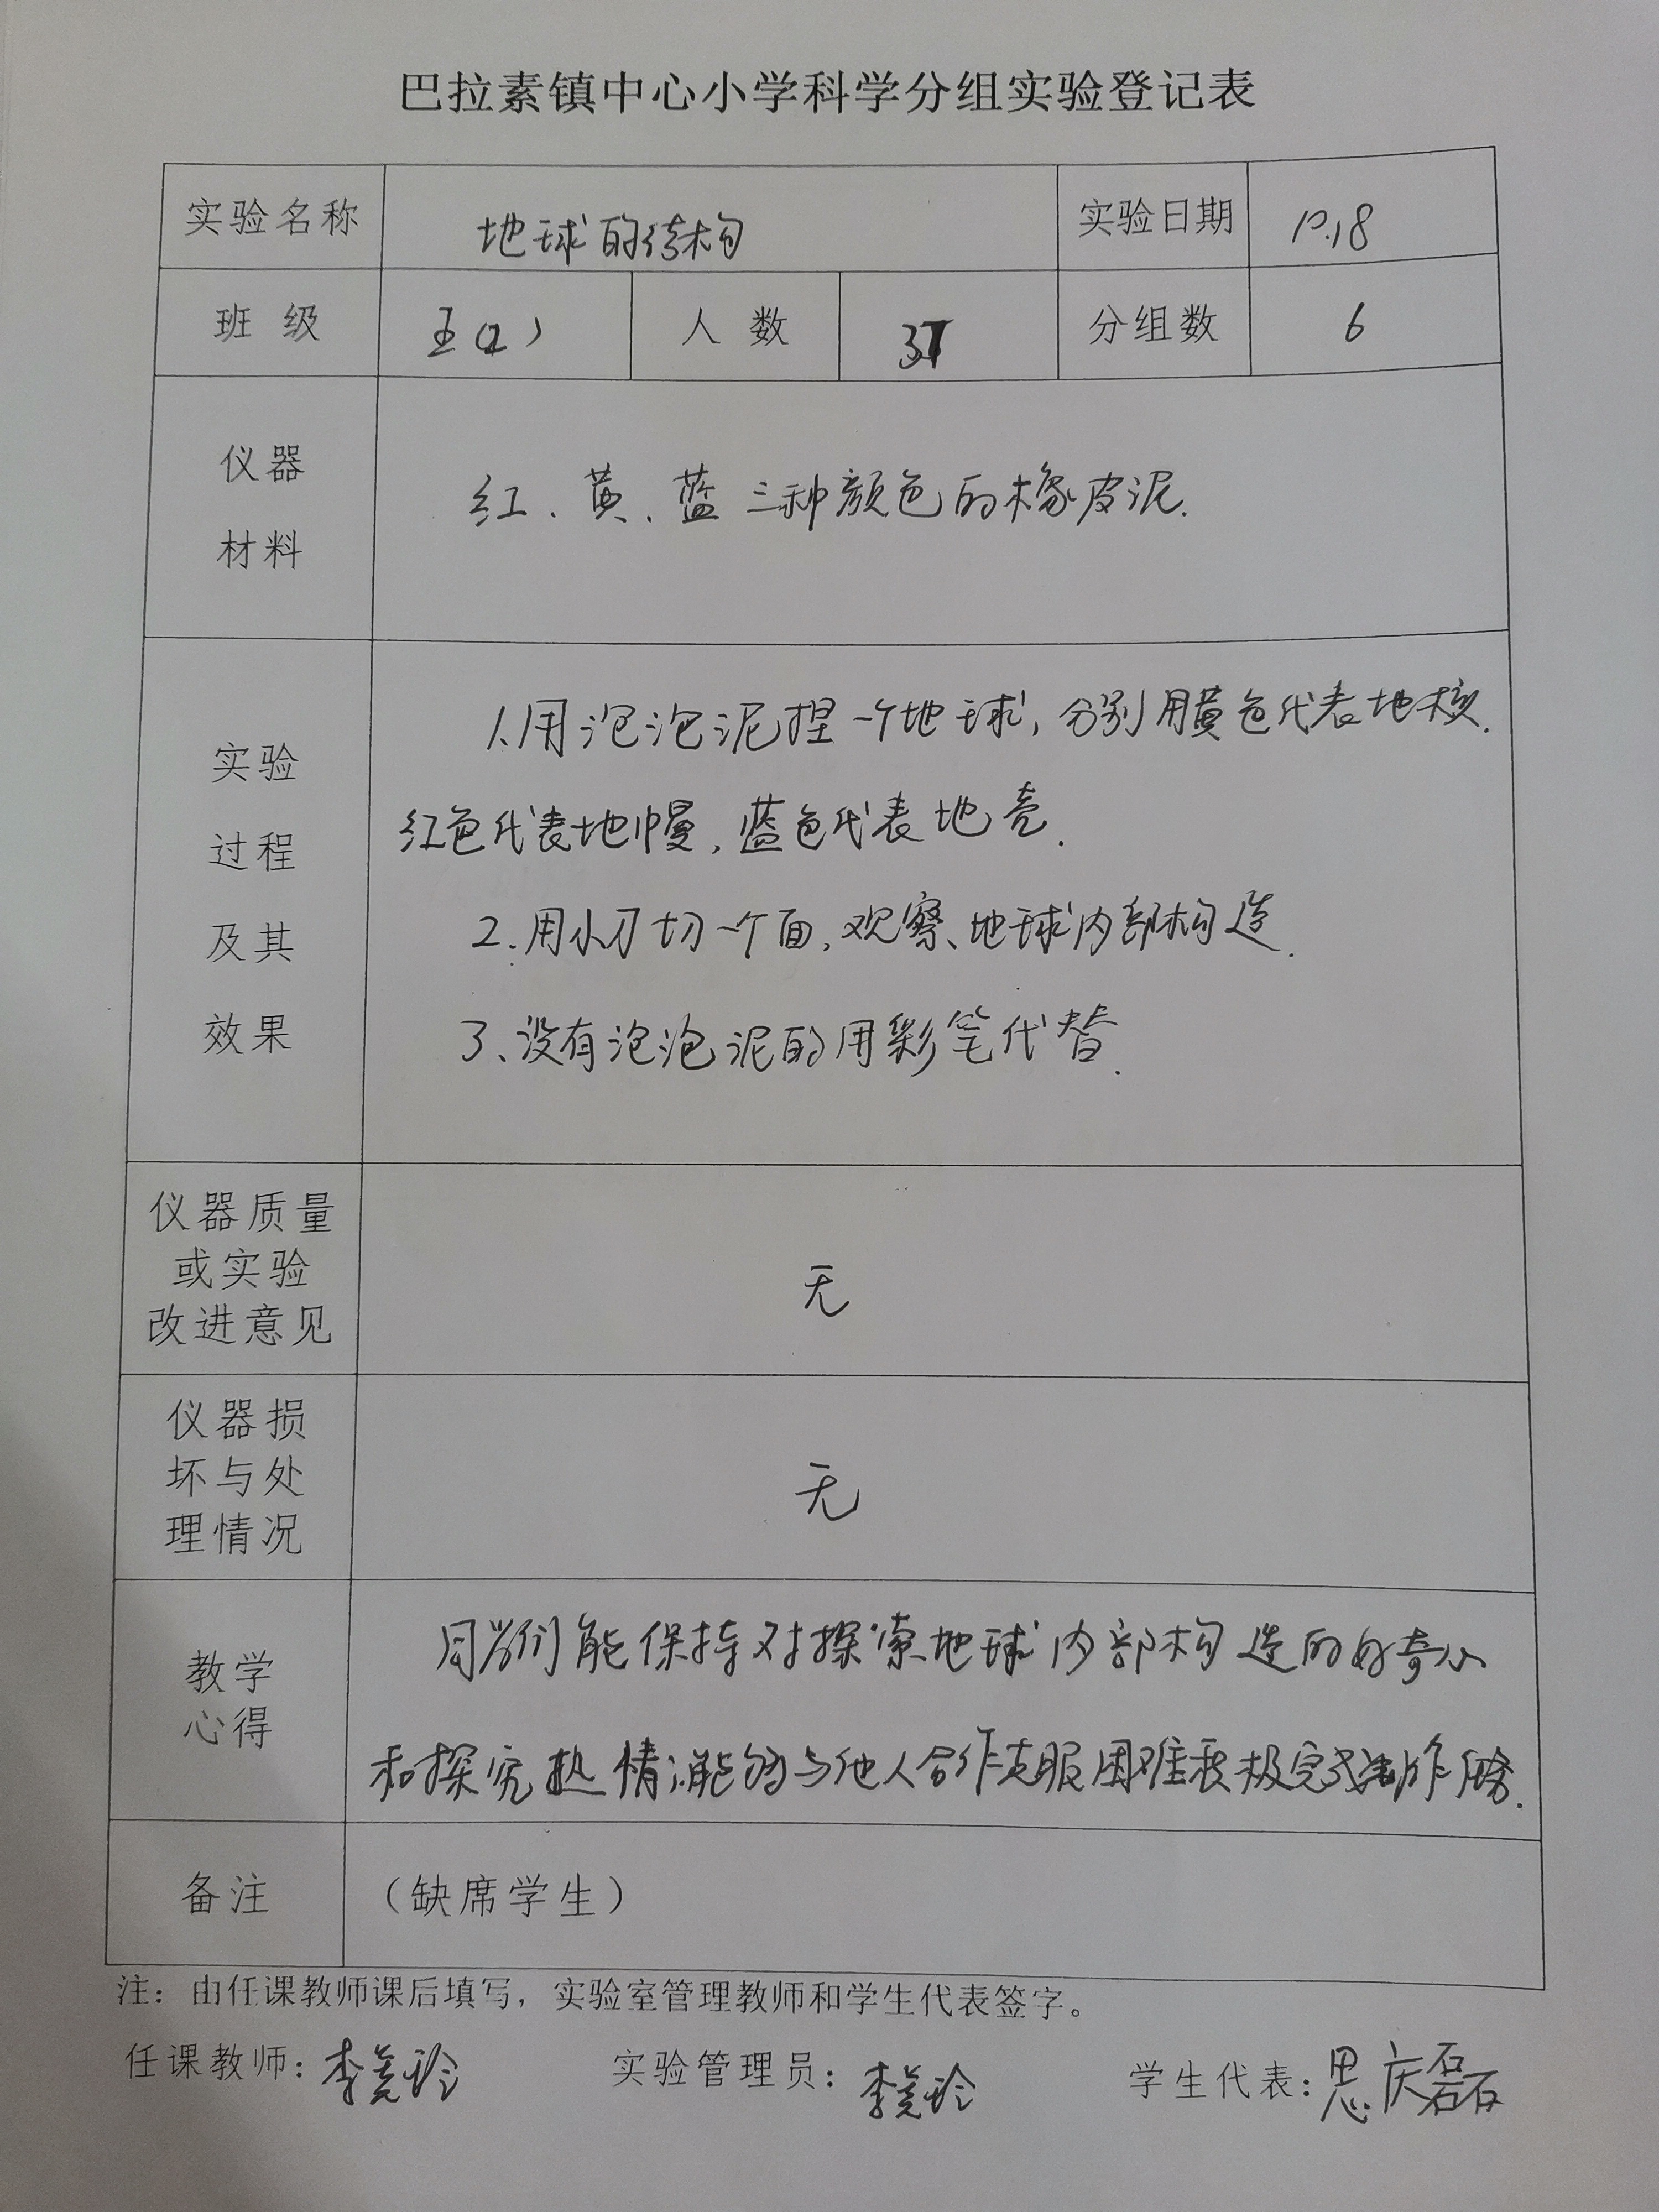 巴拉素镇中心小学科学分组实验登记表
实验名称 地球的结构 实验日期 10.18
班 级 五(2) 人 数 37 分组数 6
仪器
材料
红、黄、蓝三种颜色的橡皮泥.
实验
过程
及其
效果
1.用泡泡泥捏一个地球,分别用黄色代表地核.
红色代表地幔,蓝色代表地壳.
2.用小刀切一个面,观察、地球内部构造.
3、没有泡泡泥的用彩笔代替.
仪器质量
或实验
改进意见
无
仪器损
坏与处
理情况
无
教学
心得
同学们能保持对探索地球内部构造的好奇心
和探究热情;能够与他人合作克服困难积极完成制作任务.
备注 （缺席学生）
注：由任课教师课后填写，实验室管理教师和学生代表签字。
任课教师：李美玲 实验管理员：李美玲 学生代表：思庆磊